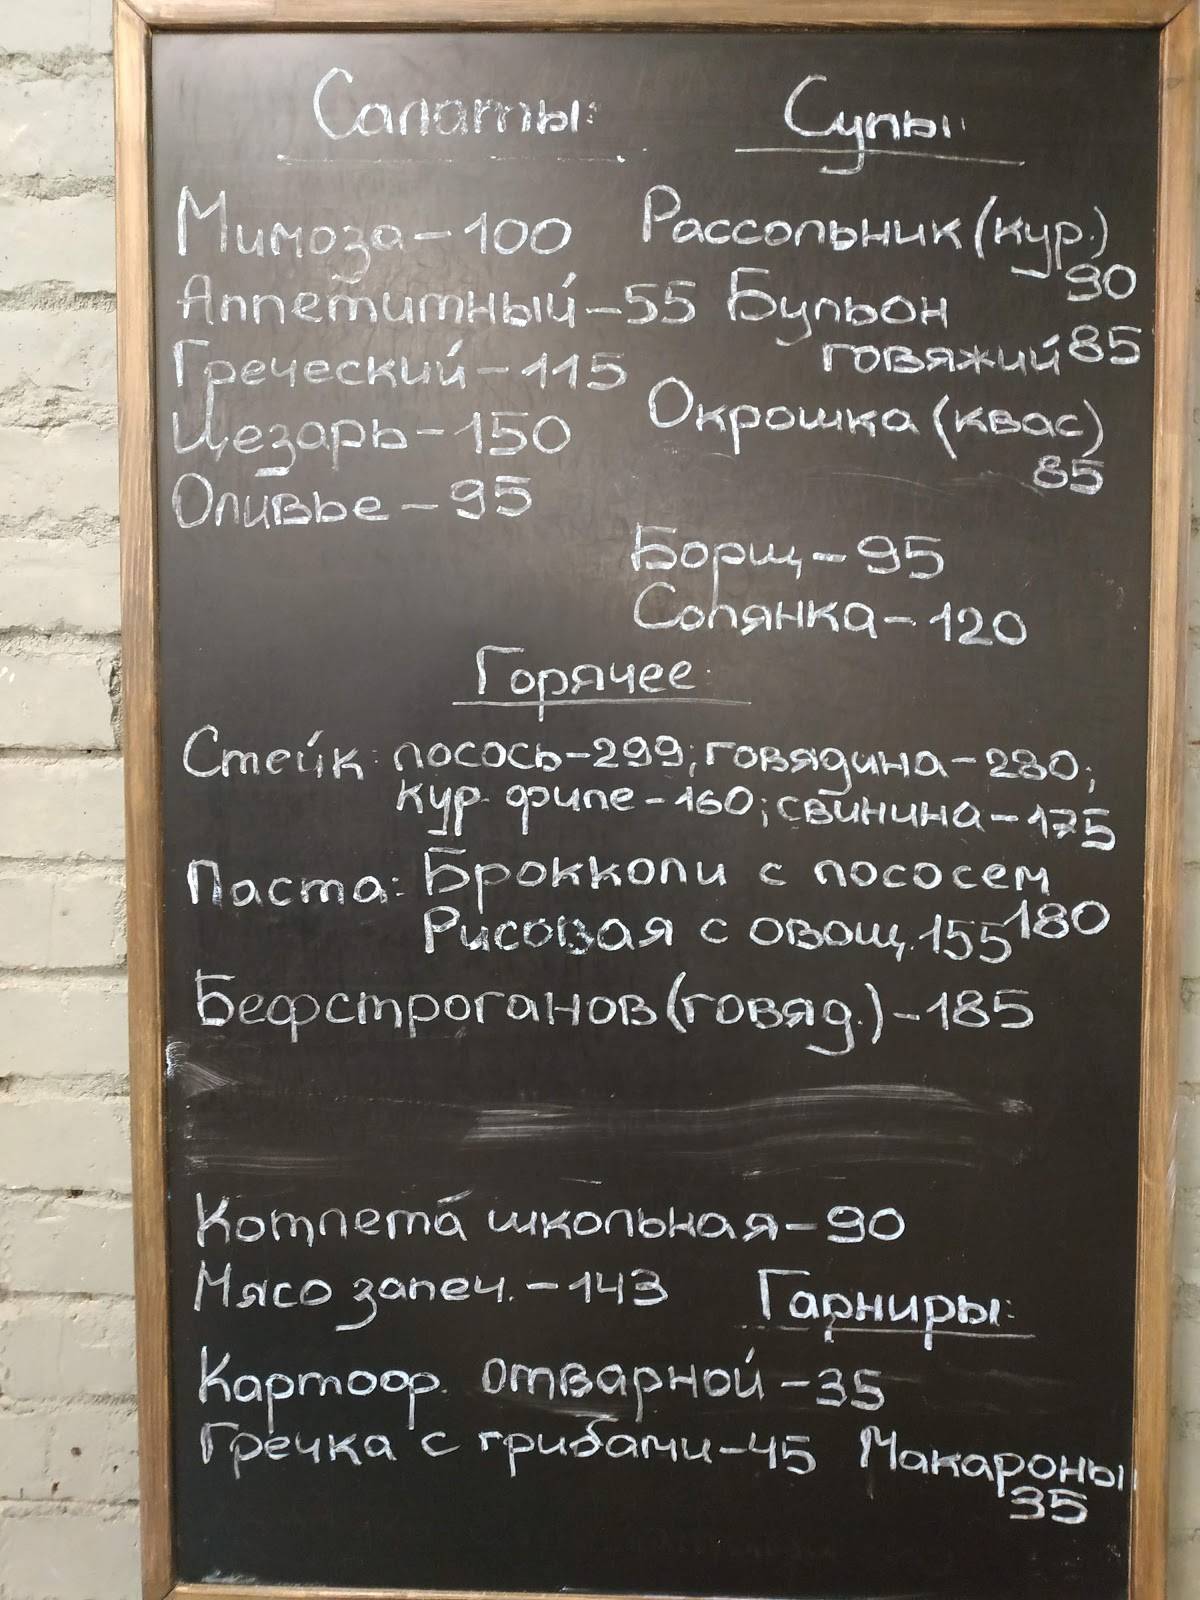 Салаты:
Мимоза-100
Аппетитный-55
Греческий-115
Цезарь-150
Оливье-95
Супы:
Рассольник (кур.)
90
Бульон
говяжий 85
Окрошка (квас)
85
Борщ-95
Солянка-120
Горячее:
Стейк: лосось-299; говядина-280;
кур. филе-160; свинина-175
Паста: Брокколи с лососем
180
Рисовая с овощ. 155
Бефстроганов (говяд.)-185
Котлета школьная-90
Мясо запеч.-143
Гарниры:
Картоф. отварной-35
Гречка с грибами-45
Макароны
35